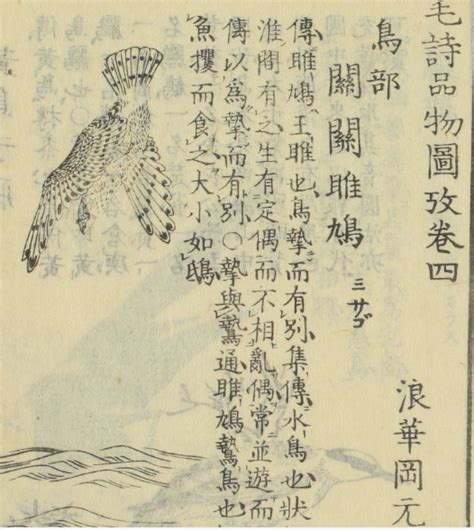 毛詩品物圖攷卷四
浪華岡元
鳥部
關關雎鳩 ミサゴ
傳雎鳩王雎也鳥摯而有別集傳水鳥也狀
淮間有之生有定偶而不相亂偶常並遊而
傳以為摯而有別○摯與鷙通雎鳩鷙鳥也
魚攫而食之大小如鴟